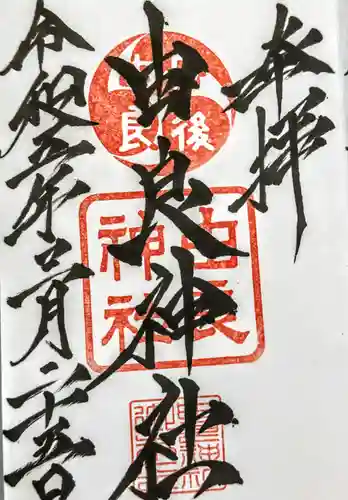 奉拝
由良神社
令和五年六月二十五日
丹後
由良
由良
神社